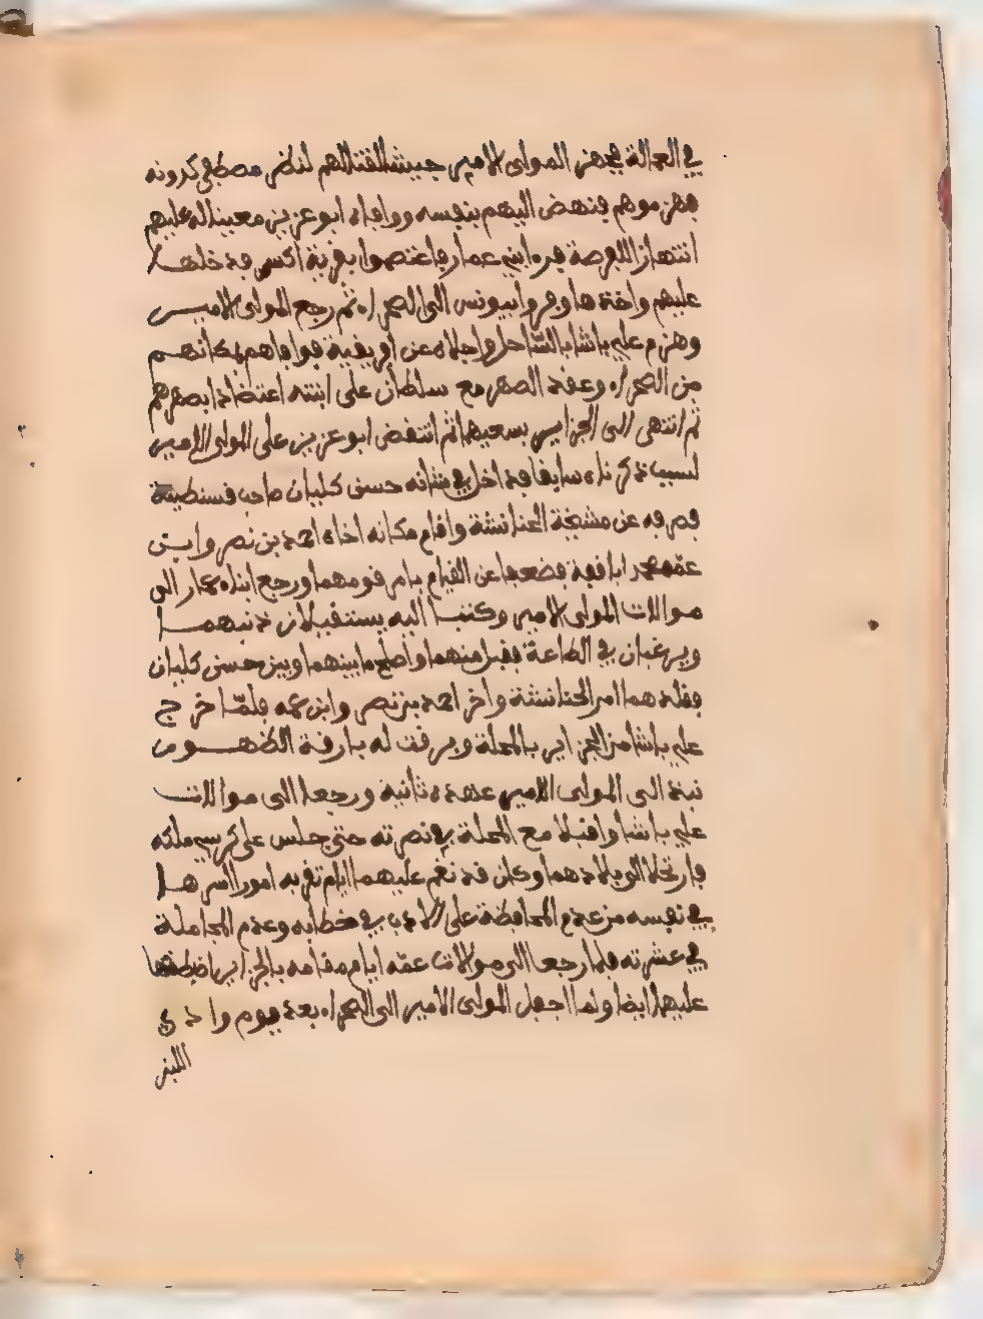 في العمالة فجهز المولى الامير جيشا لقتالهم لنظر مصطفى كردونه
فهزموهم فنهض اليهم بنفسه ووافاه ابو عزيز معينا له عليهم
انتهازا للفرصة ففر ابني عمار واعتصموا بقرية اكس فدخلها
عليهم واخذها وفروا بيونس الى الصحراء ثم رجع المولى الامير
وهزم علي باشا بالساحل واجلاه عن افريقية فوافاهم بمكانهم
من الصحراء وعقد الصهر مع سلطان على ابنته اعتضادا بصهرهم
ثم انتهى الى الجزاير بسعيهما ثم انتفض ابو عزيز على المولى الامير
لسبب ذكرناه سابقا فداخل في شانه حسن كليان صاحب قسنطينة
فصرفه عن مشيخة الحنانشة واقام مكانه اخاه احمد بن نصر وابن
عمه محمد ابا فضعفا عن القيام بامر قومهما ورجع ابناء عمار الى
موالات المولى الامير وكتبا اليه يستقيلان ذنبهما
ويرغبان في الطاعة فقبل منهما واصلح ما بينهما وبين حسن كليان
فقلدهما امر الحنانشة واخر احمد بن نصر وابن عمه فلما خرج
علي باشا من الجزاير بالمحلة وبرقت له بارقة الظهور
نبذا الى المولى الامير عهده ثانية ورجعا الى موالات
علي باشا واقبلا مع المحلة في نصرته حتى جلس على كرسي ملكه
فارتحلا الى بلادهما وكان قد نقم عليهما ايام تغربه امورا اسرها
في نفسه من عدم المحافظة على الادب في خطابه وعدم المجاملة
في عشرته فلما رجعا الى موالات عمه ايام مقامه بالجزاير
عليهما ايضا ولما اجفل المولى الامير الى الصحراء بعد يوم وادي
اللبن